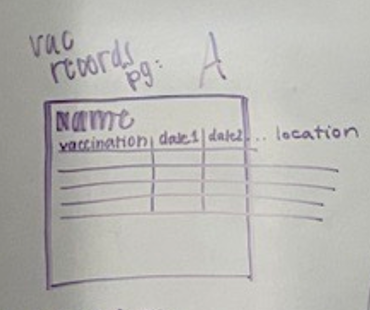 vac
records
pg: A
Name
vaccination date1 date2 ... location